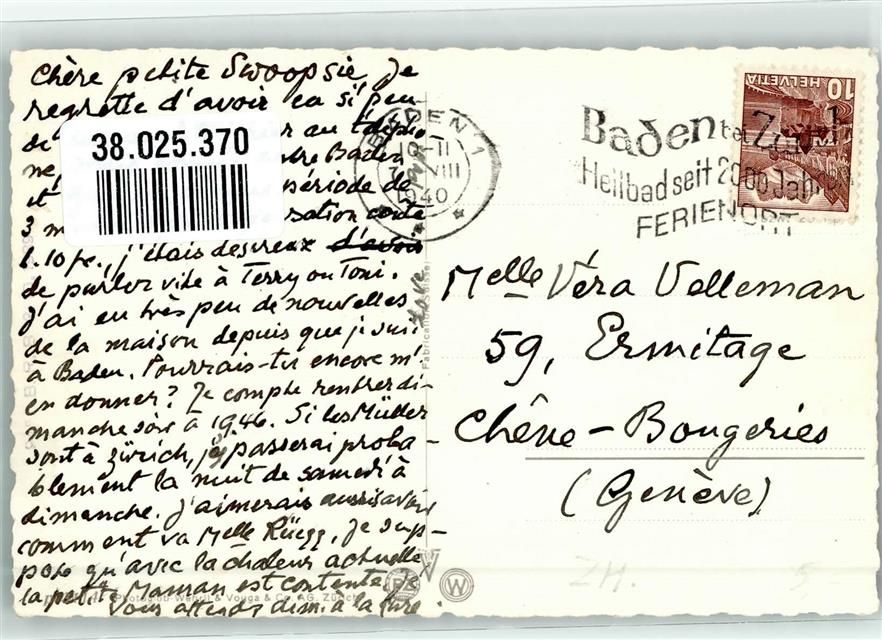 Chère petite Swoopsie, Je
regrette d'avoir eu si peu
de au télépho
ne, Baden
et période de
3 m sation coute
1.10 fr., j'étais desireux d'avoir
de parler vite à Terry ou Toni.
J'ai eu très peu de nouvelles
de la maison depuis que je suis
à Baden. Pourrais-tu encore m'
en donner? Je compte rentrer di-
manche soir à 19.46. Si les Müller
sont à Zürich, j'y passerai proba-
blement la nuit de samedi à
dimanche. J'aimerais aussi savoir
comment va Melle Rüegg. Je sup-
pose qu'avec la chaleur actuelle
la petite Maman est contente. Je
vous attends dim. à la gare.
38.025.370
BADEN 1
VIII
1940
Baden bei Zürich
Heilbad seit 2000 Jahren
FERIENORT
HELVETIA
10
Melle Véra Velleman
59, Ermitage
Chêne-Bougeries
(Genève)
Wehrli & Vouga & Co. AG. Zürich
W
ZH.
5-